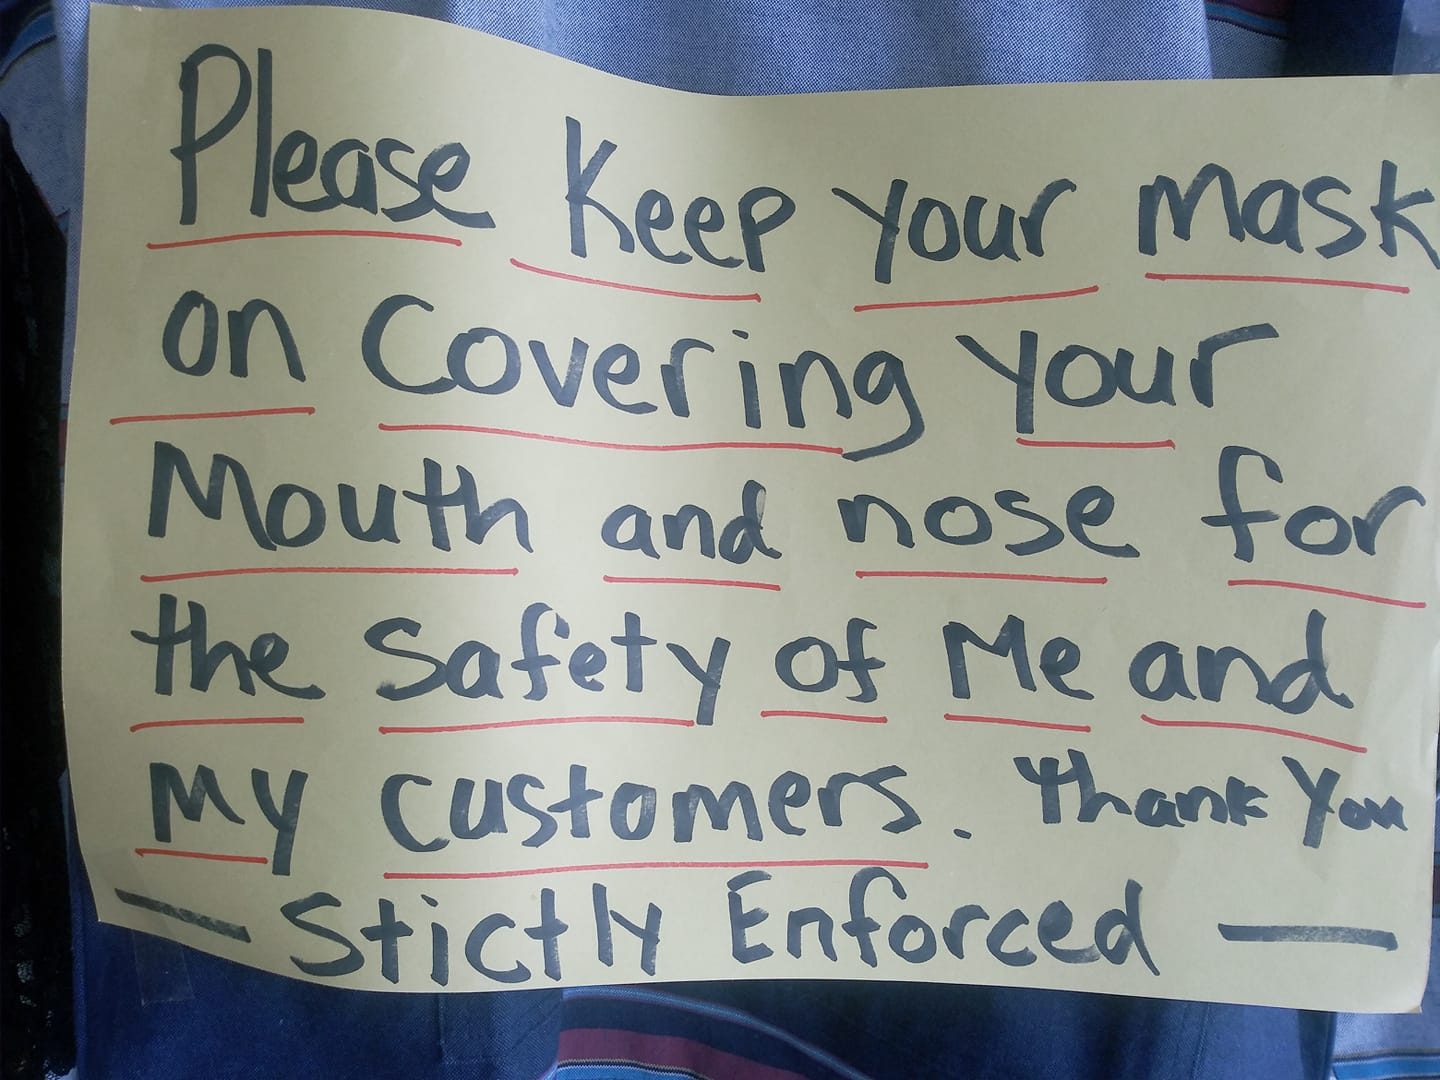 Please Keep your mask
on Covering your
Mouth and nose for
the Safety of Me and
My Customers. Thank You
— Stictly Enforced —